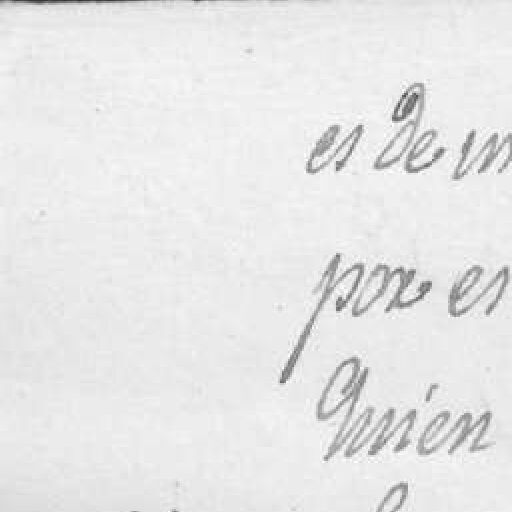 es de
por es
Quien